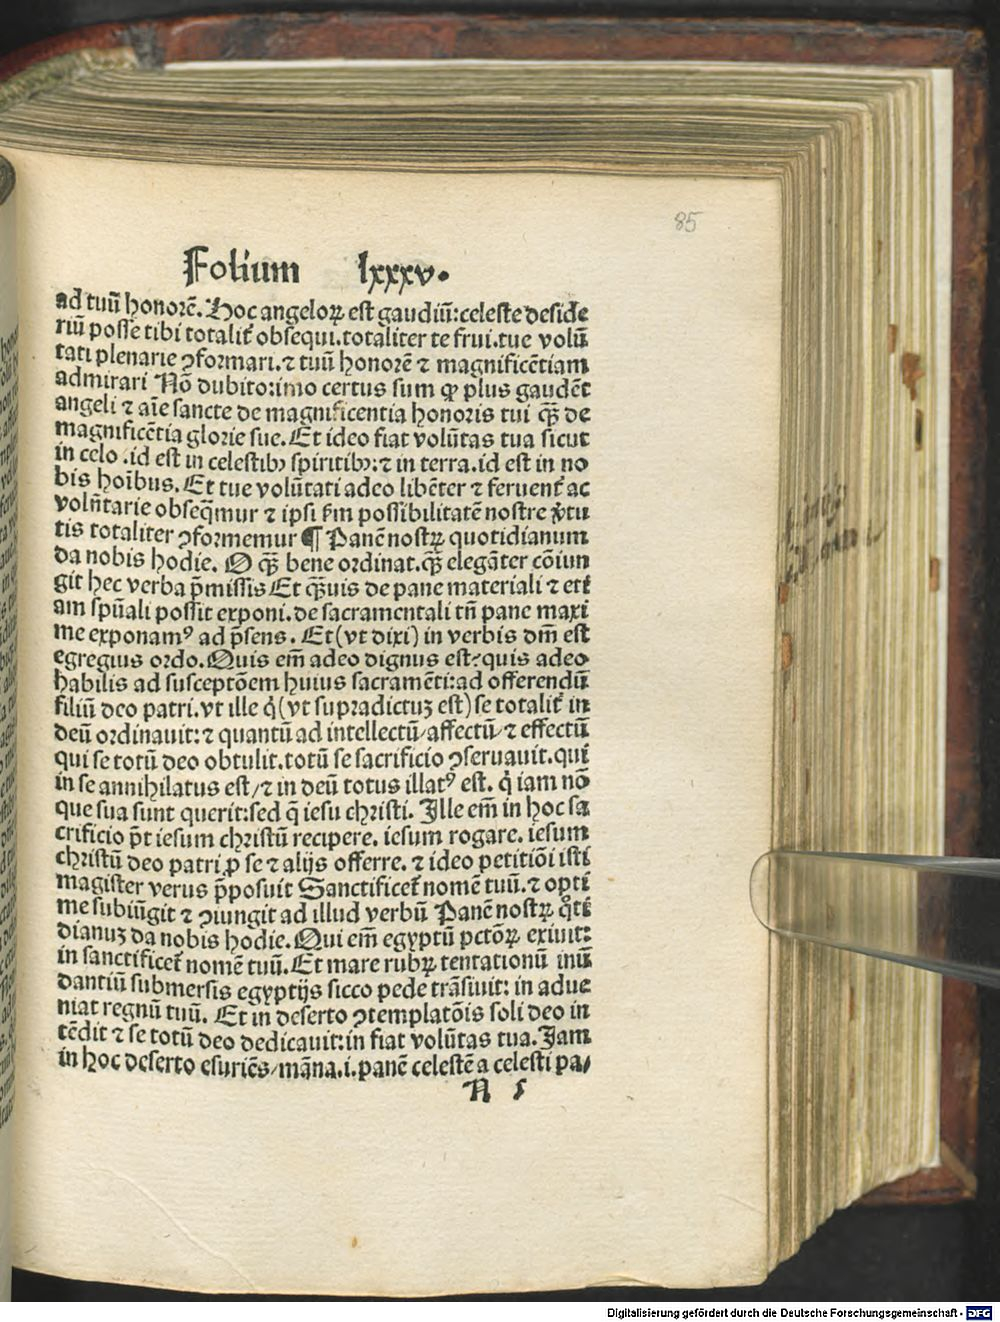 85
Folium lxxxv.
ad tuū honorē. Hoc angeloꝝ est gaudiū: celeste deside
riū posse tibi totalit̄ obsequi. totaliter te frui. tue volū
tati plenarie ꝯformari. ⁊ tuū honorē ⁊ magnificētiam
admirari Nō dubito: imo certus sum ꝙ plus gaudēt
angeli ⁊ aīe sancte de magnificentia honoris tui q̄ȝ de
magnificētia glorie sue. Et ideo fiat volūtas tua sicut
in celo .id est in celestibꝫ spiritibꝫ: ⁊ in terra. id est in no
bis hoībus. Et tue volūtati adeo libēter ⁊ feruent̄ ac
volūtarie obseq̄mur ⁊ ipsi ẜm possibilitatē nostre v̓tu
tis totaliter ꝯformemur ¶ Panē nostꝝ quotidianum
da nobis hodie. O q̄ȝ bene ordinat. q̄ȝ elegāter cōiun
git hec verba p̄missis Et q̄ȝuis de pane materiali ⁊ eti
am spūali possit exponi. de sacramentali tn̄ pane maxi
me exponamꝰ ad p̄sens. Et (vt dixi) in verbis dm̄ est
egregius ordo. Quis em̄ adeo dignus est? quis adeo
habilis ad susceptōem huius sacramēti: ad offerendū
filiū deo patri. vt ille q̇ (vt supradictuȝ est) se totalit̄ in
deū ordinauit: ⁊ quantū ad intellectū/ affectū/ ⁊ effectū
qui se totū deo obtulit. totū se sacrificio ꝯseruauit. qui
in se annihilatus est/ ⁊ in deū totus illatꝰ est. q̇ iam nō
que sua sunt querit: sed q̄ iesu christi. Ille em̄ in hoc sa
crificio p̄t iesum christū recipere. iesum rogare. iesum
christū deo patri ꝓ se ⁊ alijs offerre. ⁊ ideo petitiōi isti
magister verus p̄posuit Sanctificet̄ nomē tuū. ⁊ opti
me subiūgit ⁊ ꝯiungit ad illud verbū Panē nostꝝ q̊ti
dianuȝ da nobis hodie. Qui em̄ egyptū pctōꝝ exiuit:
in sanctificet̄ nomē tuū. Et mare rubꝝ tentationū inū
dantiū submersis egyptijs sicco pede trāsiuit: in adue
niat regnū tuū. Et in deserto ꝯtemplatōis soli deo in
tēdit ⁊ se totū deo dedicauit: in fiat volūtas tua. Iam
in hoc deserto esuriēs/ māna. i. panē celestē a celesti pa/
N 5
Digitalisierung gefördert durch die Deutsche Forschungsgemeinschaft - DFG